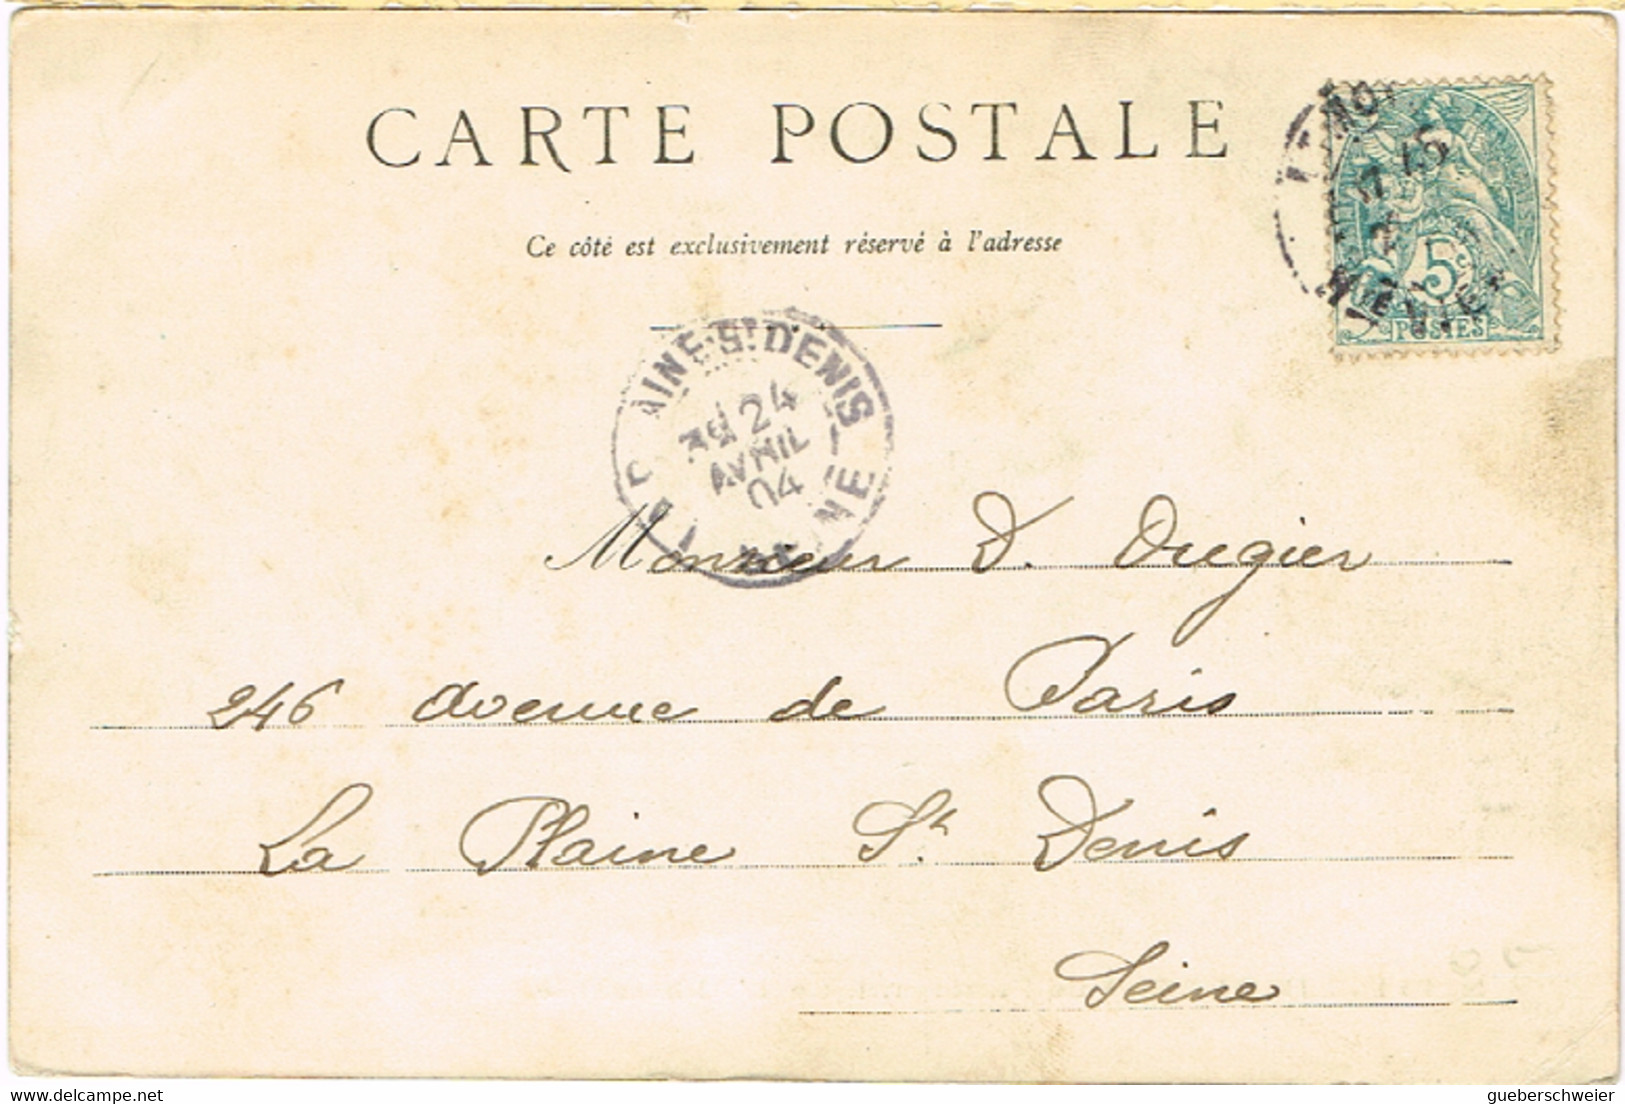 CARTE POSTALE
Ce côté est exclusivement réservé à l'adresse
5
POSTES
AINE St DENIS
24
AVRIL
04
Monsieur D. Dugier
246 Avenue de Paris
La Plaine St Denis
Seine
delcampe.net
gueberschweier